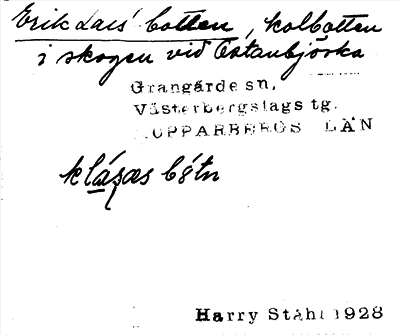 Erik Lars' botten, kolbotten
i skogen vid Östanbjörka
Grangärde sn,
Västerbergslags tg.
KOPPARBERGS LÄN
Harry Ståhl 1928